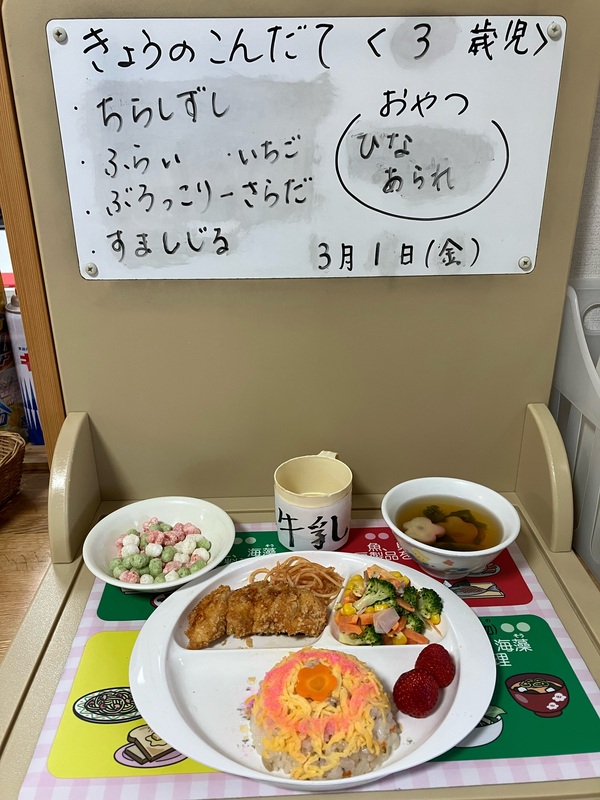 きょうのこんだて 〈 3 歳児〉
・ちらしずし
・ふらい ・いちご
・ぶろっこりーさらだ
・すましじる
おやつ
(ひな
あられ)
3月1日(金)
牛乳
海藻
魚、
海藻